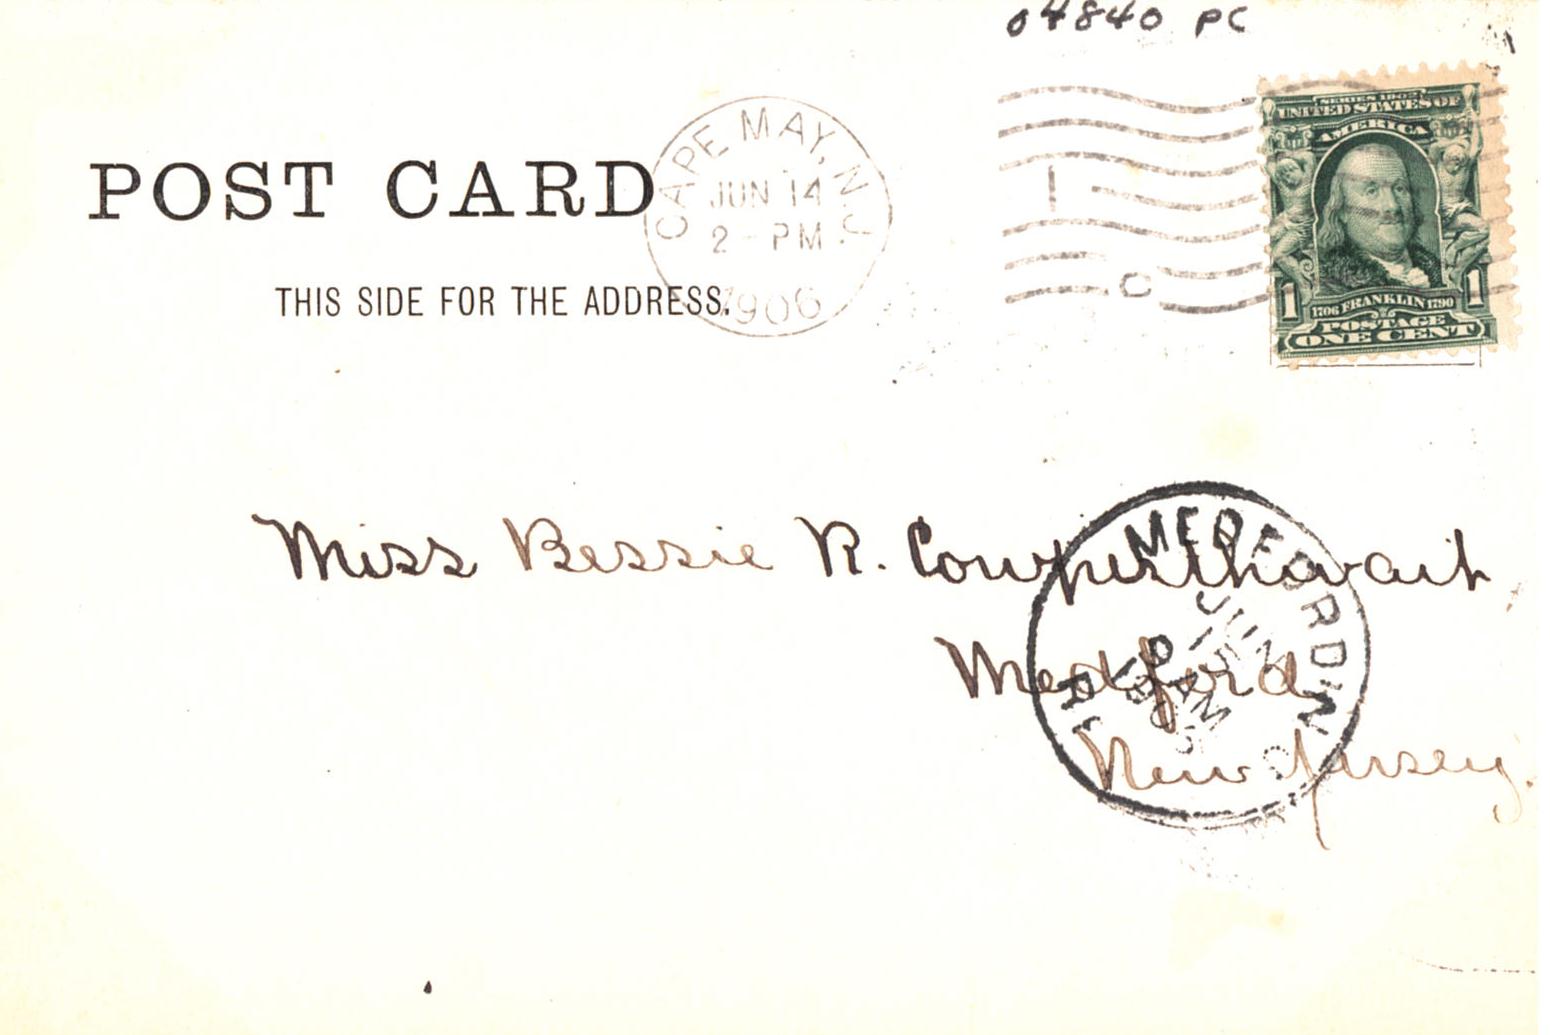 04840 PC
POST CARD
THIS SIDE FOR THE ADDRESS.
CAPE MAY, N.J.
JUN 14
2 - PM
1906
1 C
SERIES 1902
UNITED STATES OF
AMERICA
1 1706 FRANKLIN 1790 1
POSTAGE
ONE CENT
Miss Bessie R. Cowperthwait
Medford
New Jersey.
MEDFORD N
JUN
AM